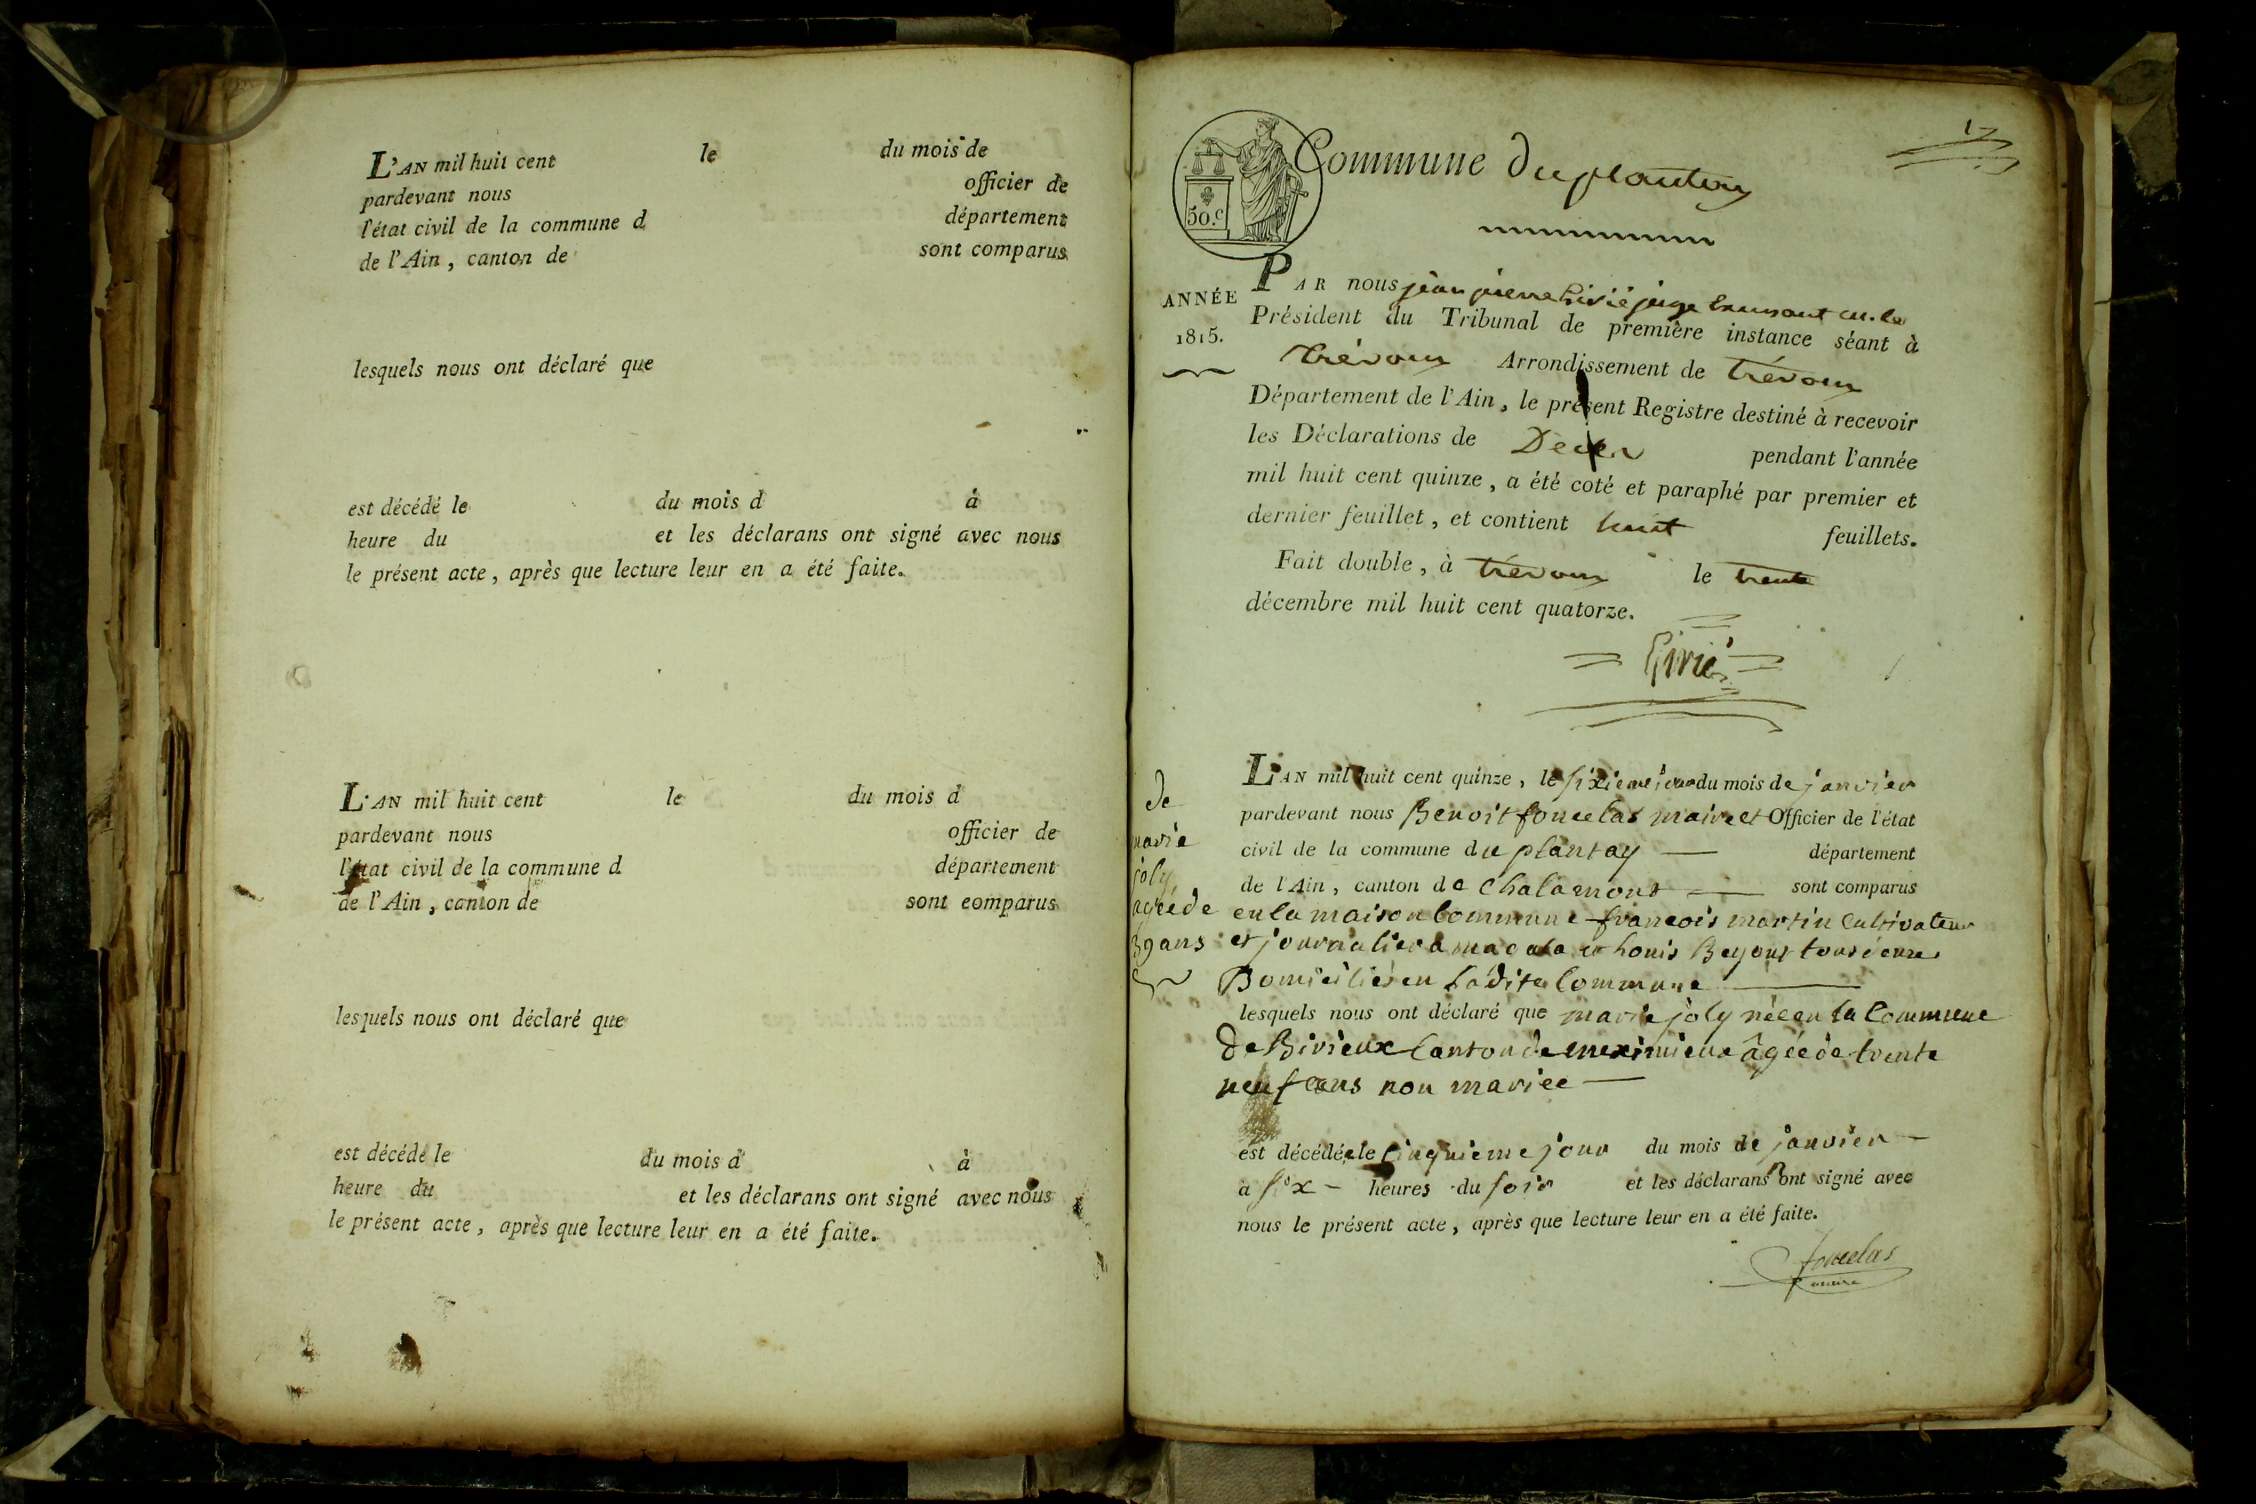 L'AN mil huit cent le du mois de
pardevant nous officier de
l'état civil de la commune d département
de l'Ain, canton de sont comparus
lesquels nous ont déclaré que
est décédé le du mois d à
heure du et les déclarans ont signé avec nous
le présent acte, après que lecture leur en a été faite.
L'AN mil huit cent le du mois d
pardevant nous officier de
l'état civil de la commune d département
de l'Ain, canton de sont comparus
lesquels nous ont déclaré que
est décédé le du mois d à
heure du et les déclarans ont signé avec nous
le présent acte, après que lecture leur en a été faite.
50.c
Commune du plantay
ANNÉE
1815.
PAR nous jean pierre juge
Président du Tribunal de première instance séant à
trévoux Arrondissement de trévoux
Département de l'Ain, le présent Registre destiné à recevoir
les Déclarations de Décès pendant l'année
mil huit cent quinze, a été coté et paraphé par premier et
dernier feuillet, et contient huit feuillets.
Fait double, à trévoux le trente
décembre mil huit cent quatorze.
de
marie
joly
agéé de
39 ans
L'AN mil huit cent quinze, le sixieme jour du mois de janvier
pardevant nous Benoit foncelas maire et Officier de l'état
civil de la commune du plantay département
de l'Ain, canton de Chalamont sont comparus
en la maison Commune francois martin Cultivateur
et journalier a et Louis
Domicilies en Ladite Commune
lesquels nous ont déclaré que marie joly née en la Commune
de Birieux Canton de meximieux âgée de trente
neuf ans non mariee
est décédée le Cinquieme jour du mois de janvier
a six heures du soir et les déclarans ont signé avec
nous le présent acte, après que lecture leur en a été faite.
foncelas
maire